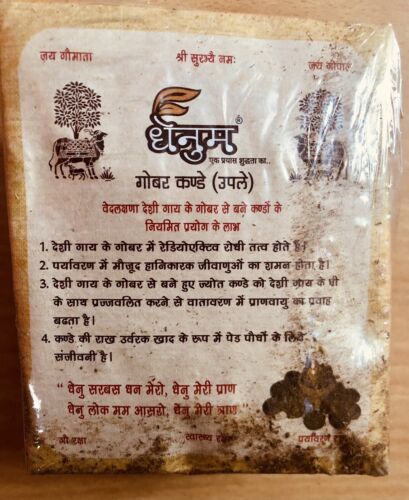 जय गौमाता श्री सुरभ्यै नमः जय गोपाल
धेनुम®
एक प्रयास शुद्धता का..
गोबर कण्डे (उपले)
वेदलक्षणा देशी गाय के गोबर से बने कण्डों के
नियमित प्रयोग के लाभ
1. देशी गाय के गोबर में रेडियोएक्टिव रोधी तत्व होते है।
2. पर्यावरण में मौजूद हानिकारक जीवाणुओं का शमन होता है।
3. देशी गाय के गोबर से बने हुए ज्योत कण्डे को देशी गाय के घी
के साथ प्रज्जवलित करने से वातावरण में प्राणवायु का प्रवाह
बढता है।
4. कण्डे की राख उर्वरक खाद के रूप में पेड पौधों के लिए
संजीवनी है।
“ धेनु सरबस धन मेरो, धेनु मेरी प्राण
धेनु लोक मम आसरो, धेनु मेरी त्राण ”
गौ रक्षा स्वास्थ्य रक्षा पर्यावरण